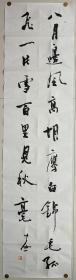 八月邊風高胡鷹白錦毛孤
飛一片雪百里見秋毫